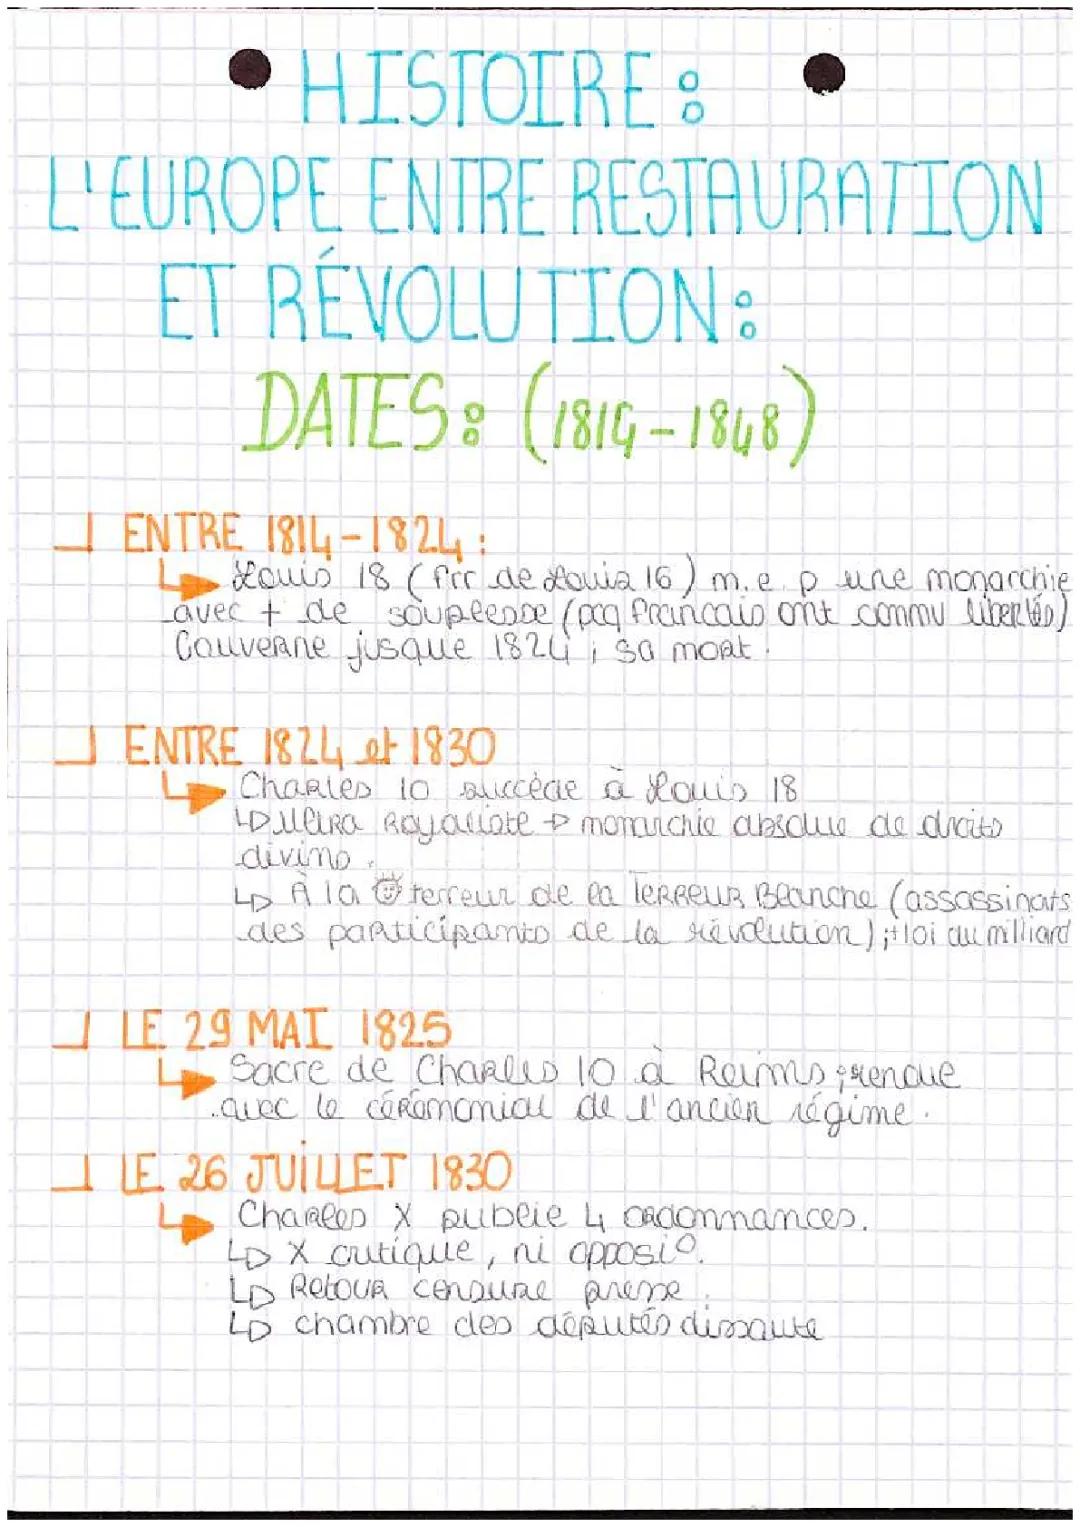 HISTOIRE :
L'EUROPE ENTRE RESTAURATION
ET RÉVOLUTION :
DATES : (1814-1848)
ENTRE 1814-1824 :
Louis 18 (frr de Louis 16) m.e.p une monarchie
avec + de souplesse (pcq francais ont connu libertés)
Gouverne jusque 1824 ; sa mort.
ENTRE 1824 et 1830
Charles 10 succède à Louis 18
Ultra Royaliste → monarchie absolue de droits
divins.
À la terreur de la Terreur Blanche (assassinats
des participants de la révolution) ;+ loi du milliard
LE 29 MAI 1825
Sacre de Charles 10 à Reims ; renoue
avec le cérémonial de l'ancien régime.
LE 26 JUILLET 1830
Charles X publie 4 ordonnances.
X critique, ni opposi°.
Retour censure presse.
chambre des députés dissoute